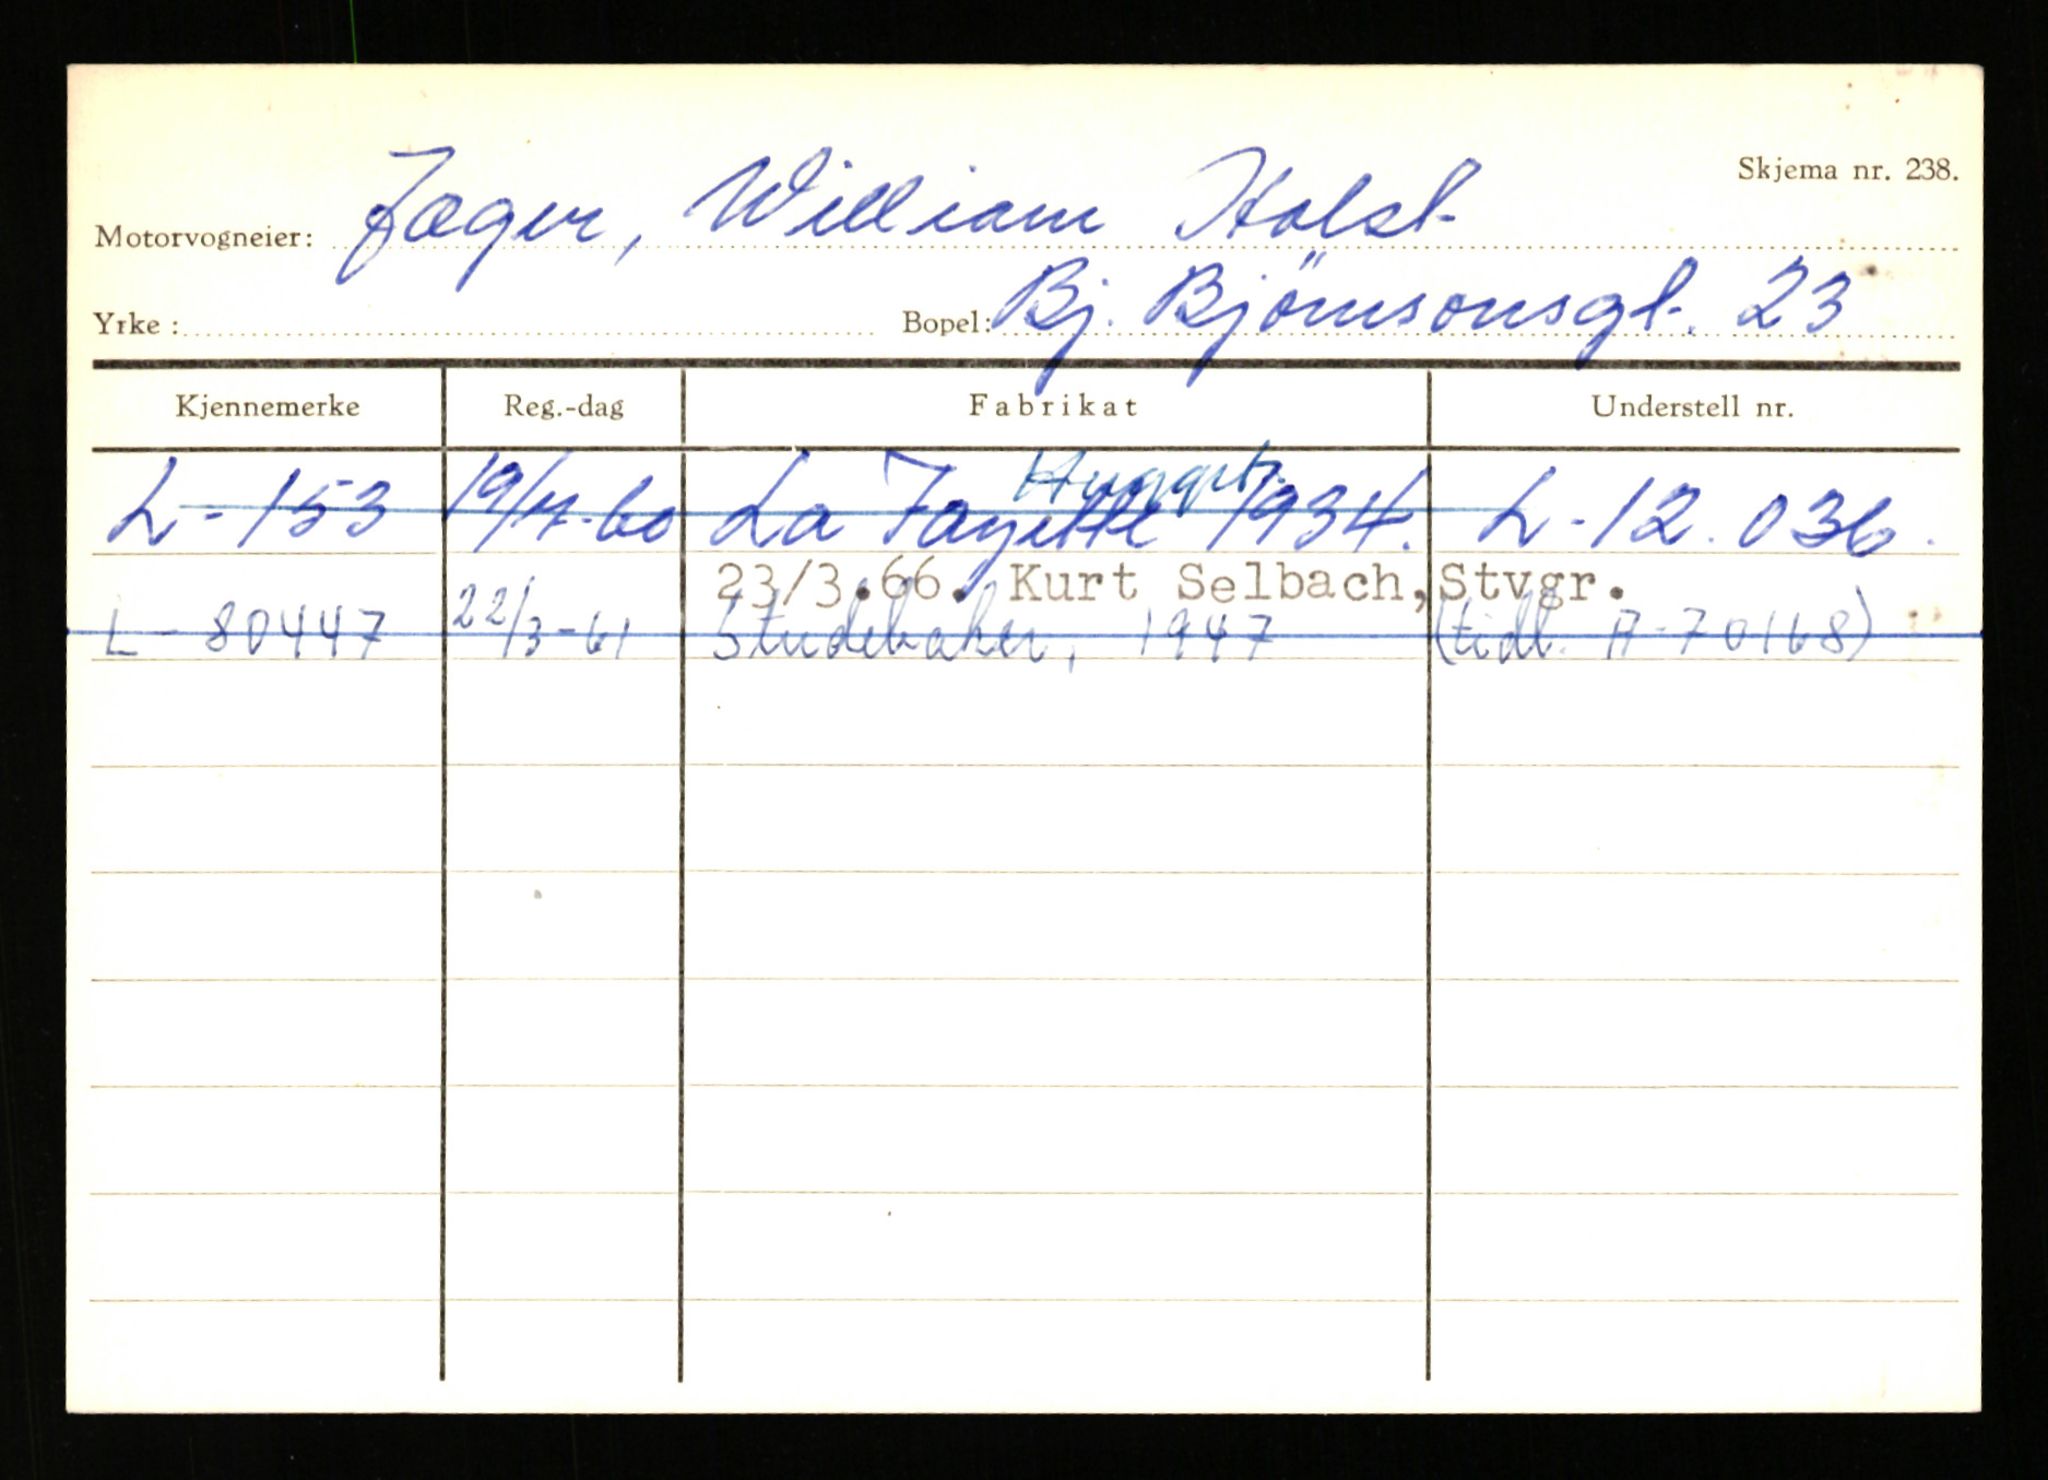 Skjema nr. 238.
Motorvogneier: Jæger, William Holst
Yrke: Bopel: Bj. Björnsonsgt. 23
Kjennemerke Reg.-dag Fabrikat Understell nr.
Hugget.
L-153 19/4-60 La Fayette 1934. L-12.036.
23/3.66. Kurt Selbach, Stvgr.
L-80447 22/3-61 Studebaker, 1947 (tidl. A-70168)